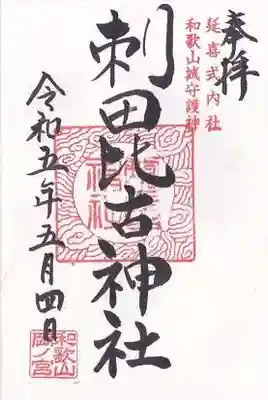 奉拝
延喜式内社
和歌山城守護神
刺田比古神社
令和五年五月四日
和歌山
岡ノ宮